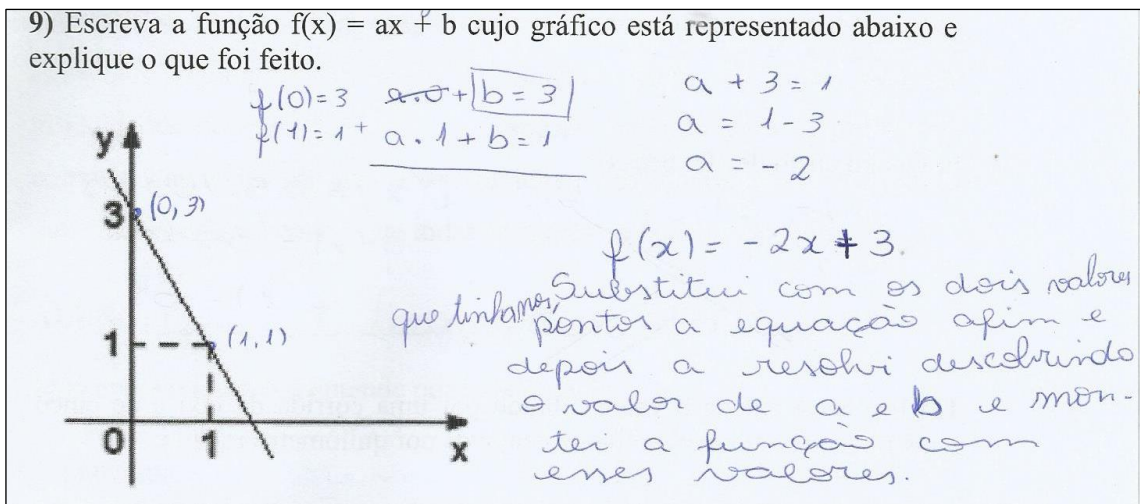 9) Escreva a função f(x) = ax + b cujo gráfico está representado abaixo e
explique o que foi feito.
f(0)=3 a.0+b=3
f(1)=1+ a.1+b=1
a+3=1
a=1-3
a=-2
y
3 (0,3)
1 (1,1)
0 1 x
f(x)=-2x+3.
Substitui com os dois valores
que tinhamos, pontos a equação afim e
depois a resolvi descobrindo
o valor de a e b e mon-
tei a função com
esses valores.